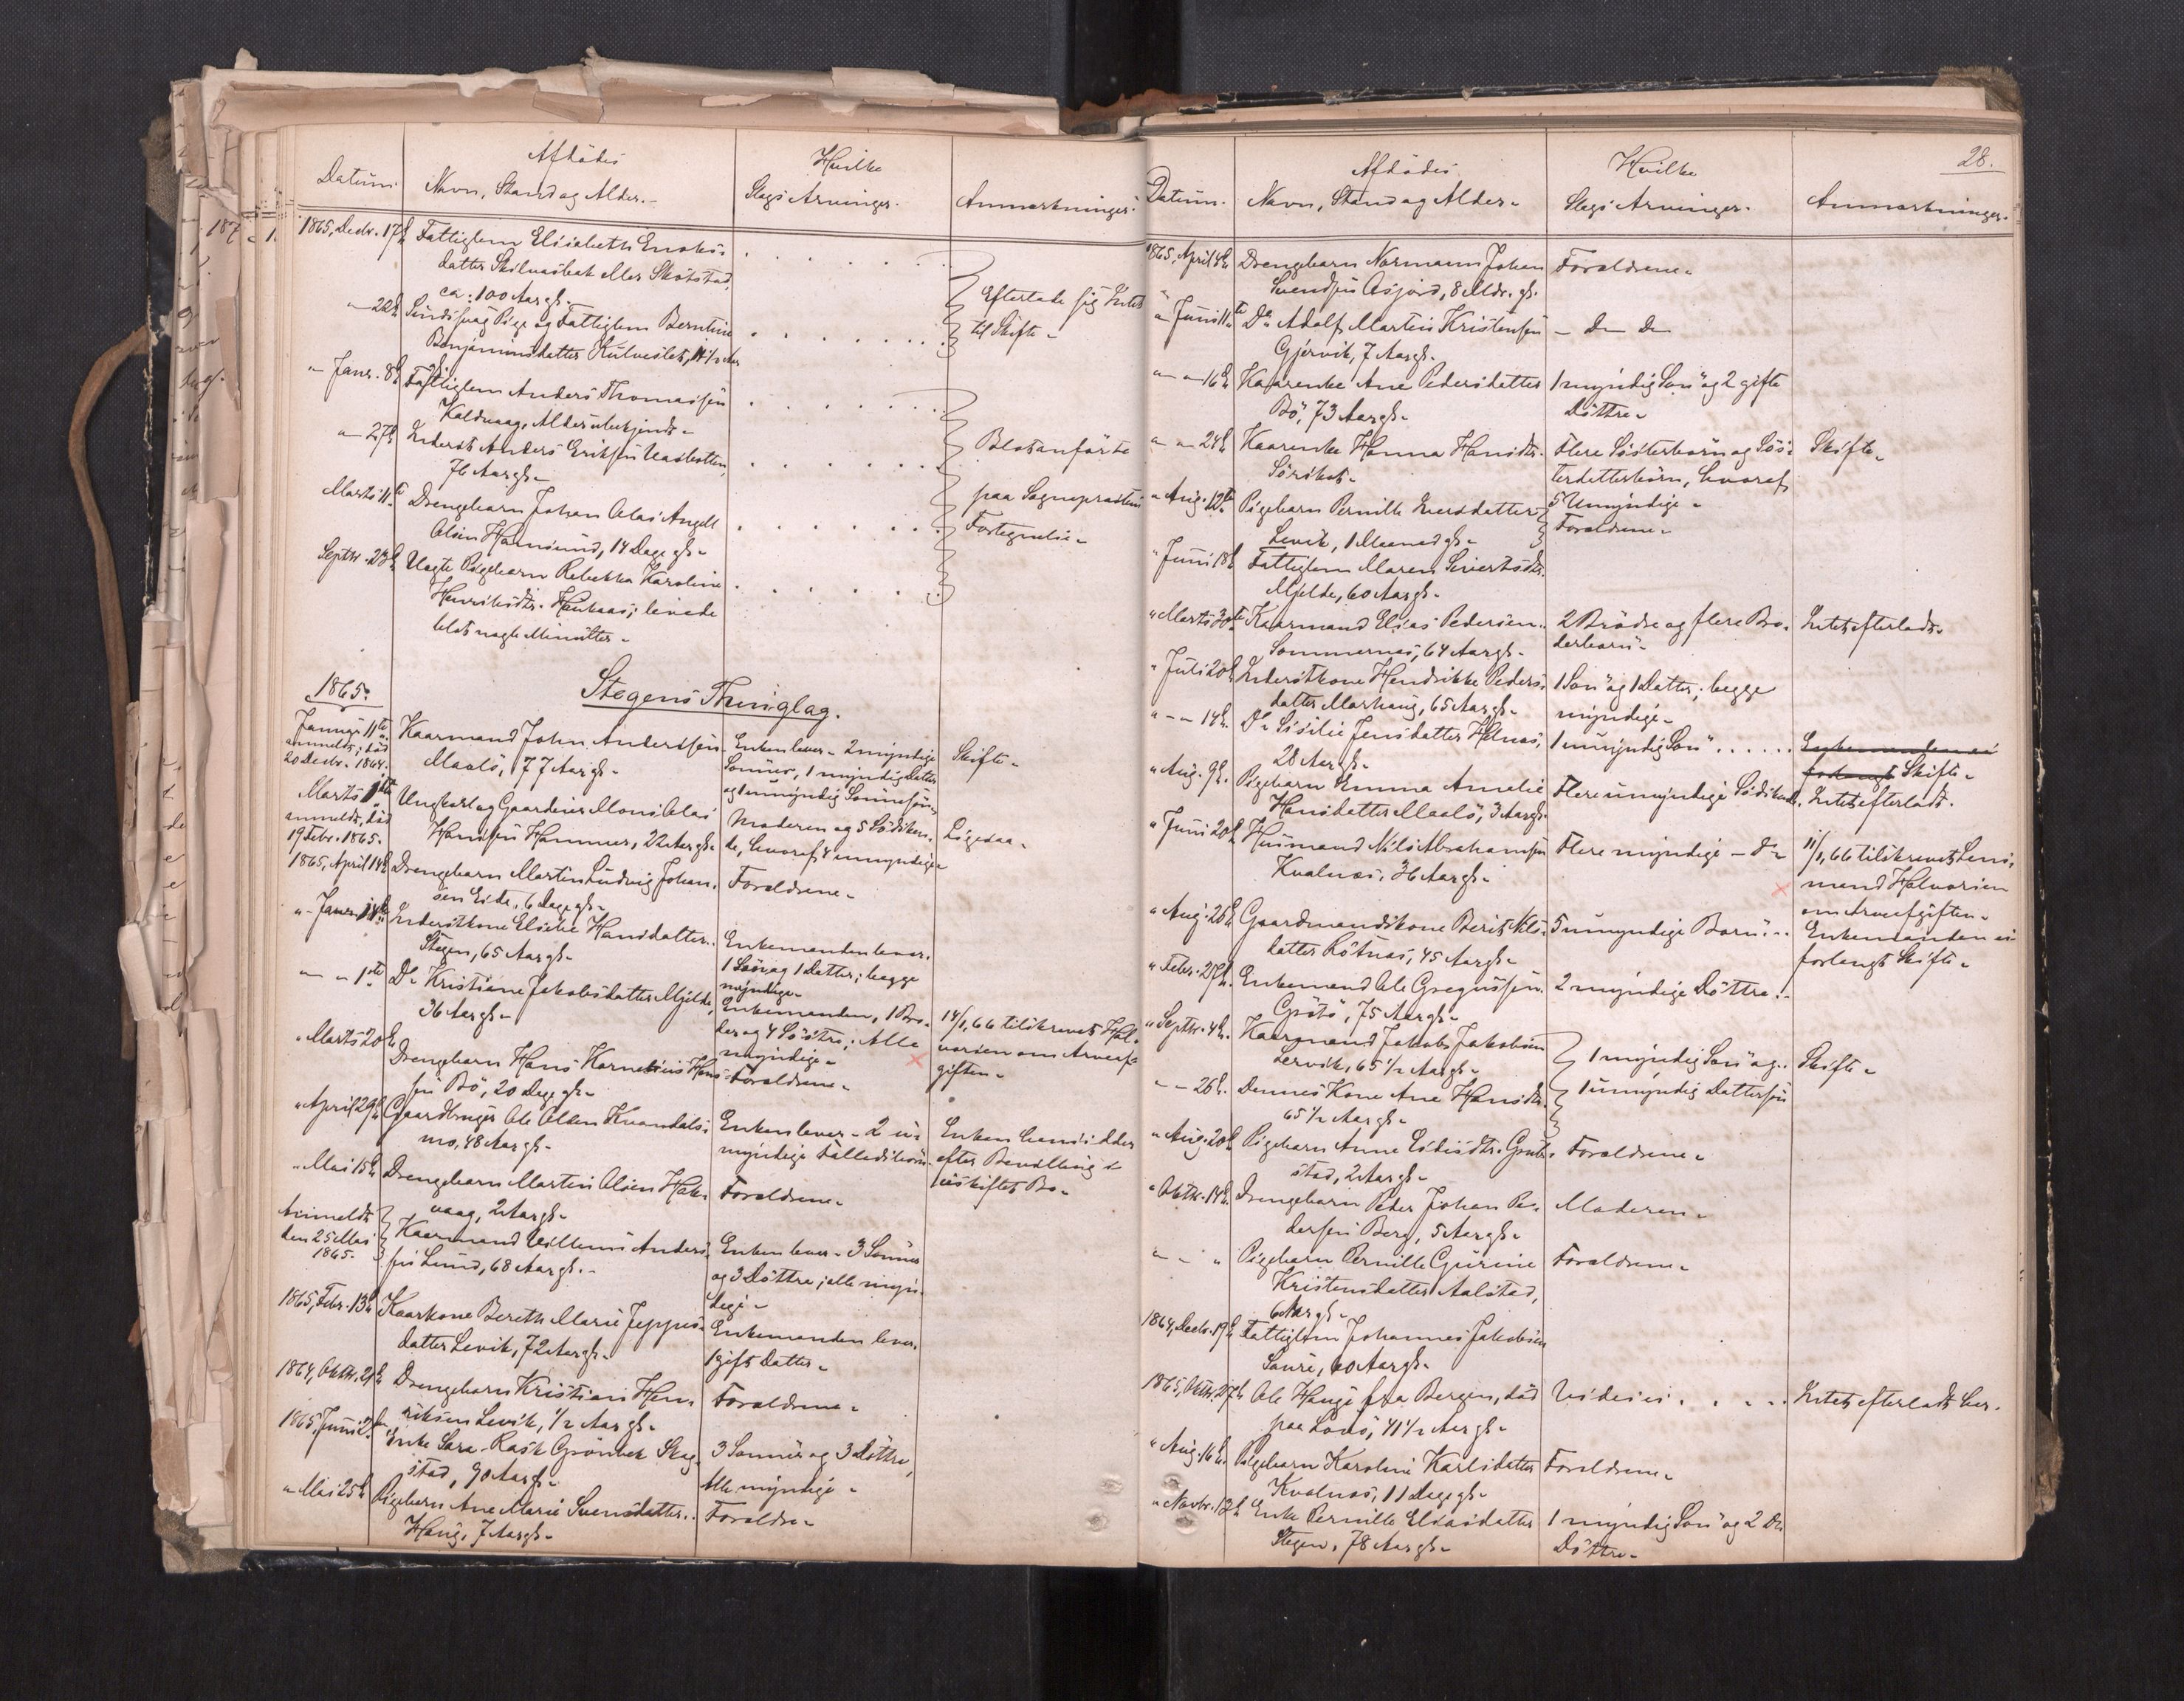 Afdødes
Hvilke
Datum.
Navn, Stand og Alder.
Slags Arvinger.
Anmærkninger.
1865, Decbr. 17de
Fattiglem Elisabeth Enoks-
datter Skotstad,
ca. 100 Aar gl.
" 22de
Sindssvag Pige og Fattiglem Berntine
Benjaminsdatter
Efterlade sig Intet
til Skifte
" Janr. 8de
Fattiglem Anders Thomassen
Kaldvaag, Alder ubekjendt
" 27de
Inderst Anders Eriksen
76 Aar gl.
Marts 11te
Drengebarn Johan Olai Angell
Olsen Hamsund, 14 Dage gl.
Septbr. 23de
Uægte Pigebarn Rebekka Karoline
Henriksdtr. levede
blot nogle Minutter
Blot anførte
paa Sognepræstens
Fortegnelse
Stegens Thinglag.
1865.
Januar 11te
anmeldt; død
20 Decbr. 1864.
Kaarmand John Anderssen
Maalø, 77 Aar gl.
Enken lever - 2 myndige
Sønner, 1 myndig Datter
og 1 umyndig Sønnesøn
Skifte
Marts
anmeldt, død
19 Febr. 1865.
Ungkarl og Gaardeier Mons Olai
Hanssen Hammer, 22 Aar gl.
Moderen og 5 Sødsken-
de, hvoraf 4 umyndige
Ligesaa
1865, April 14de
Drengebarn Martin Ludvig Johan-
sen Eide, 6 Dage gl.
Forældrene
" Janr. 14de
Inderstkone Elsebe Hansdatter
Stegen, 65 Aar gl.
Enkemanden lever.
1 Søn og 1 Datter; begge
myndige
" " 1ste
Do Kristiane Jakobsdatter Mjelde,
36 Aar gl.
Enkemanden, 1 Bro-
der og 4 Søstre; Alle
myndige
14/1, 66 tilskrevet Hal-
vorsen om Arveaf-
giften
" Marts 20de
Drengebarn Hans Kornelius Hans-
sen Bø, 20 Dage gl.
Forældrene
" April 29de
Gaardbruger Ole Olsen Kvandals-
mo, 48 Aar gl.
Enken lever - 2 u-
myndige Fællesbørn
Enken hensidder
efter Bevilling i
uskiftet Bo
" Mai 15de
Drengebarn Martin Olsen Haks-
vaag, 2 Aar gl.
Forældrene
Anmeldt
den 25 Mai
1865.
Kaarmand Villum Anders-
sen Lund, 68 Aar gl.
Enken lever - 3 Sønner
og 3 Døttre; alle myn-
dige
1865, Febr. 13de
Kaarkone Bereth Marie Jeppes-
datter Levik, 72 Aar gl.
Enkemanden lever.
1 gift Datter
1864, Oktbr. 21de
Drengebarn Kristian Hen-
riksen Levik, 1/2 Aar gl.
Forældrene
1865, Juni 2den
Enke Sara Rask Grønbek Skag-
stad, 90 Aar gl.
3 Sønner og 3 Døttre,
Alle myndige
" Mai 25de
Pigebarn Ane Marie Svensdatter
Haug, 7 Aar gl.
Forældre
28.
Afdødes
Hvilke
Datum.
Navn, Stand og Alder
Slags Arvinger.
Anmærkninger.
1865, April 4de
Drengebarn Normann Johan
Svendsen Asjord, 8 Mdr. gl.
Forældrene
" Juni 11te
Do Adolf Martin Kristensen
Gjervik, 7 Aar gl.
— Do Do
" " 16de
Kaarenke Ane Pedersdatter
Bø, 73 Aar gl.
1 myndig Søn og 2 gifte
Døttre
" " 24de
Kaarenke Hanna Hansdtr.
Flere Søsterbørn og Søs-
terdatterbørn, hvoraf
5 Umyndige
Skifte
" Aug. 12te
Pigebarn Pernille Iversdatter
Levik, 1 Maaned gl.
Forældrene
" Juni 18de
Fattiglem Maren Sivertsdtr.
Mjelde, 60 Aar gl.
" Marts 30te
Kaarmand Elias Pedersen
Sommernes, 64 Aar gl.
2 Brødre og flere Bro-
derbørn
Intet efterladt
" Juli 20de
Inderstkone Hendrikke Peders-
datter Marhaug, 65 Aar gl.
1 Søn og 1 Datter; begge
myndige
" " 14de
Do Sisilie Jensdatter Helnes,
28 Aar gl.
1 umyndig Søn
Enkemanden ei
forlangt Skifte
" Aug. 9de
Pigebarn Emma Amalie
Hansdatter Maalø, 3 Aar gl.
Flere umyndige Sødskende.
Intet efterladt.
" Juni 20de
Husmand Nils Abrahamsen
Kvalnes, 36 Aar gl.
Flere myndige - Do
11/1, 66 tilskrevet Lens-
mand Halvorsen
om Arveafgiften
" Aug. 26de
Gaardmandskone Berit Nils-
datter Løtnes, 45 Aar gl.
5 umyndige Børn
Enkemanden ei
forlangt Skifte
" Febr. 27de
Enkemand Ole Gregussen
Grøtø, 75 Aar gl.
2 myndige Døttre
" Septbr. 4de
Kaarmand Jakob Jakobsen
Lervik, 65 1/2 Aar gl.
1 myndig Søn og
1 umyndig Dattersøn
Skifte
" " 26de
Dennes Kone Ane Hansdtr.
65 1/2 Aar gl.
" Aug. 20de
Pigebarn Anne
stad, 2 Aar gl.
Forældrene
" Oktbr. 14de
Drengebarn Peder Johan Pe-
dersen Berg, 5 Aar gl.
Moderen
" " "
Pigebarn Pernille Gurine
Kristensdatter Aalstad,
6 Aar gl.
Forældrene
1864, Decbr. 19de
Fattiglem Johannes Jakobsen
60 Aar gl.
1865, Oktbr. 27de
Ole Hauge fra Bergen, død
paa Lovø, 41 1/2 Aar gl.
Vides ei
Intet efterladt her.
" Aug. 16de
Pigebarn Karoline Karlsdatter
Kvalnes, 11 Dage gl.
Forældrene
" Novbr. 13de
Enke Pernille Eliasdatter
Stegen, 78 Aar gl.
1 myndig Søn og 2 Do
Døttre